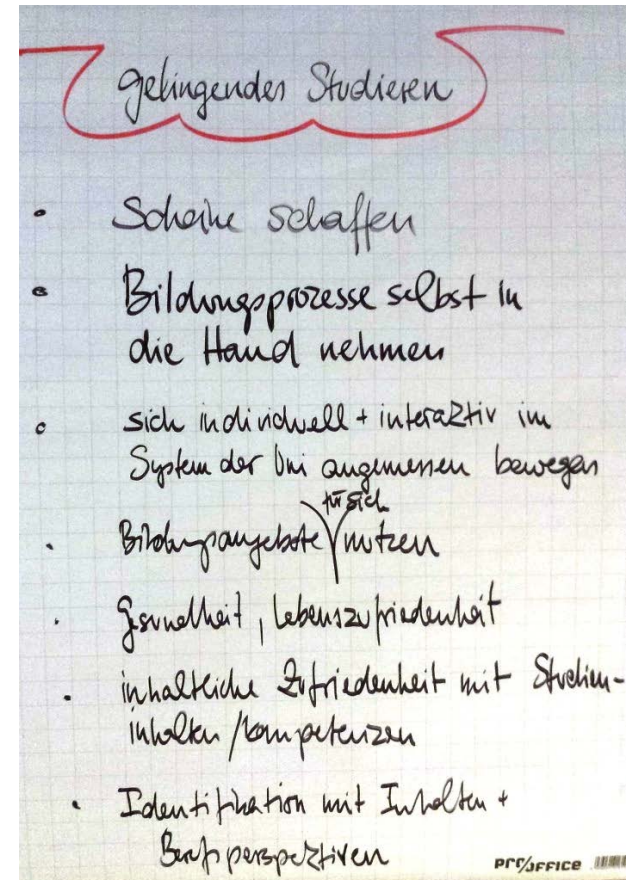 gelingendes Studieren
• Scheine schaffen
• Bildungsprozesse selbst in
die Hand nehmen
• sich individuell + interaktiv im
System der Uni angemessen bewegen
für sich
• Bildungsangebote nutzen
• Gesundheit, Lebenszufriedenheit
• inhaltliche Zufriedenheit mit Studien-
inhalten/kompetenzen
• Identifikation mit Inhalten +
Berufsperspektiven
PRO/OFFICE